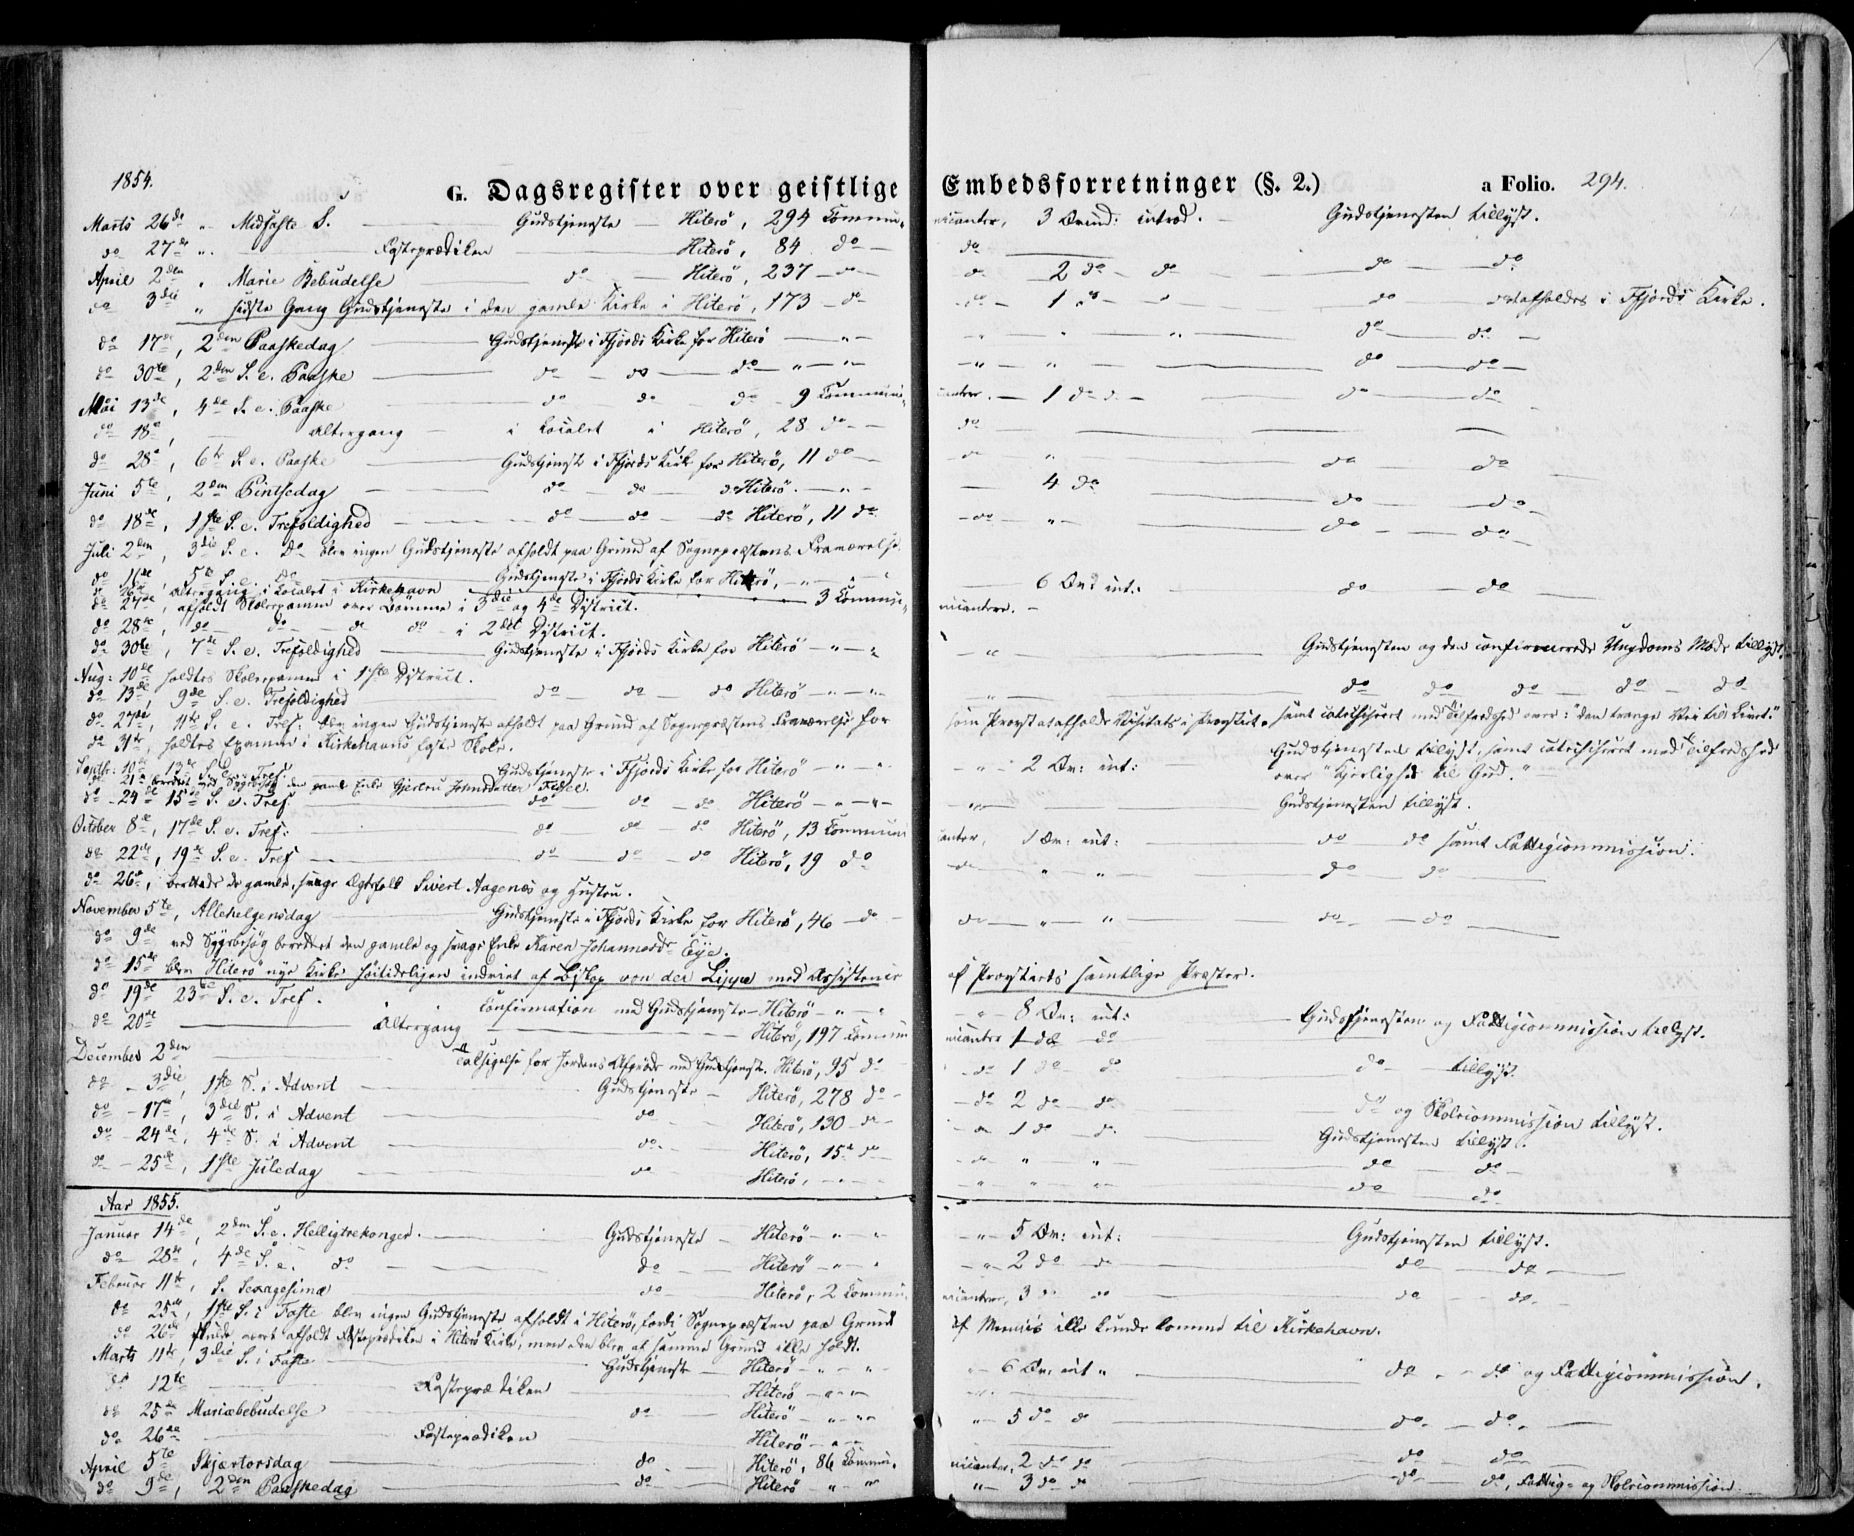 1854.
G. Dagsregister over geistlige Embedsforretninger (§. 2.) a Folio. 294.
Marts 26de " Midfaste S. Gudstjeneste Hiterö, 294 Communicanter, 3 introd. Gudstjenesten tillyst.
do 27de " Fasteprædiken Hiterö, 84 do do
April 2den " Mariæ Bebudelse do Hiterö, 237 do do 2 do do do do
do 3die " sidste Gang Gudstjeneste i den gamle Kirke i Hiterö, 173 do do 1 do " do at afholdes i Fjords Kirke.
do 17de, 2den Paaskedag Gudstjeneste i Fjords Kirke for Hiterö " " " do do
do 30te, 2den S. e. Paaske do do do " " " do do
Mai 13de, 4de S. e. Paaske do do do 9 Communicanter. 1 do do do do
do 18de, Altergang i Localet i Hiterö, 28 do do
do 28de, 6te S. e. Paaske Gudstjeneste i Fjords Kirke for Hiterö, 11 do do " do do
Juni 5te, 2den Pintsedag do do do Hiterö. " 4 do do do
do 18de, 1ste S. e. Trefoldighed do do do Hiterö, 11 do do " do do
Juli 2den, 3die S. e. do blev ingen Gudstjeneste afholdt paa Grund af Sognepræstens Fraværelse.
do 16de, 5te S. e. do Gudstjeneste i Fjords Kirke for Hiterö, " 6 int: do do
do Altergang i Localet i Kirkehavn 3 Communicantere.
do 27de, afholdt Skoleexamen over Börnene i 3die og 4de District.
do 28de, do do do do i 2det District.
do 30te, 7de S. e. Trefoldighed Gudstjeneste i Fjords Kirke for Hiterö " " " Gudstjenesten og den confirmerede Ungdoms Möde tillyst.
Aug: 10de holdtes Skoleexamen i 1ste District.
do 13de, 9de S. e. Trefoldighed do do do Hiterö " " " do do do do do
do 27de, 11te S. e. Tref: blev ingen Gudstjeneste afholdt paa Grund af Sognepræstens Fraværelse for som Provst at afholde Visitats i Provstiet. samt catechiseret med Tilfredshed over: "den trange Vei til Livet."
do 31te, holdtes Examen i Kirkehavns faste Skole. Gudstjenesten tillyst, samt catechiseret med Tilfredshed
Septbr: 10de 13de S. e. Tref: Gudstjeneste i Fjords Kirke for Hiterö " " 2 int: over "Kjerlighed til Gud."
do 21de berettet ved Sygebesög den gamle Enke Gjertru Johnsdatter
do 24de 15de S. e. Tref. do do do Hiterö " " " Gudstjenesten tillyst.
October 8de, 17de S. e. Tref: do do do Hiterö, 13 Communicanter, 1 int: do do samt Fattigcommission.
do 22de, 19de S. e. Tref do do do Hiterö, 19 do do " " do do
do 26de, berettede de gamle, svage Ægtefolk Sivert Aagenæs og Hustru.
November 5te, Allehelgensdag Gudstjeneste i Fjords Kirke for Hiterö, 46 do do " " do do
do 9de ved Sygebesög berettet den gamle og svage Enke Karen Johannesdr Eye.
do 15de blev Hiterö nye Kirke höitideligen indviet af Biskop von der Lippe med Assistence af Provstiets samtlige Præster.
do 19de 23de S. e. Tref. Confirmation med Gudstjeneste Hiterö " " " 8 int: Gudstjenesten og Fattigcommission tillyst.
do 20de Altergang Hiterö, 197 Communicanter 1 do do
December 2den Taksigelse for Jordens Afgröde med Gudstjeneste. Hiterö, 95 do do 1 do do do tillyst.
do 3die, 1ste S. i Advent Gudstjeneste Hiterö, 278 do do 2 do do do og Skolecommission tillyst.
do 17de, 3die S. i Advent do Hiterö, 130 do do 1 do do Gudstjenesten tillyst.
do 24de, 4de S. i Advent do Hiterö, 15 do do " " do do
do 25de, 1ste Juledag do Hiterö, " " " do do
Aar 1855.
Januar 14de, 2den S. e. Helligtrekonger. Gudstjeneste Hiterö " " " 5 int: Gudstjenesten tillyst.
do 28de, 4de S. e. do do Hiterö " " " 2 do do do do
Februar 11te, S. Sexagesima do Hiterö, 2 Communicanter, 3 do do do do
do 25de, 1ste S. i Faste blev ingen Gudstjeneste afholdt i Hiterö, fordi Sognepræsten paa Grund af ikke kunde komme til Kirkehavn.
do 26de skulde været afholdt Fasteprædiken i Hiterö Kirke, men den blev af samme Grund ikke holdt.
Marts 11te, 3die S. i Faste Gudstjeneste Hiterö " " " 6 int " do do og Fattigcommission.
do 12te Fasteprædiken Hiterö " " "
do 25de Mariæbebudelse do Hiterö " " " 5 do do do do
do 26de Fasteprædiken Hiterö " "
April 5te Skjærtorsdag do Hiterö, 86 Communicanter, 2 do do do do
do 9de, 2den Paaskedag do Hiterö " " " 3 do do do do, Fattig- og Skolecommission.